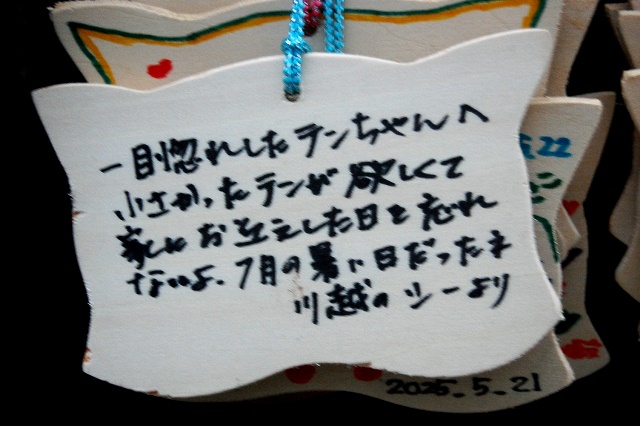 一目惚れしたテンちゃんへ
小さかったテンが欲しくて
家にお迎えした日を忘れ
ないよ。7月の暑い日だったネ
川越のシーより
22
2025.5.21